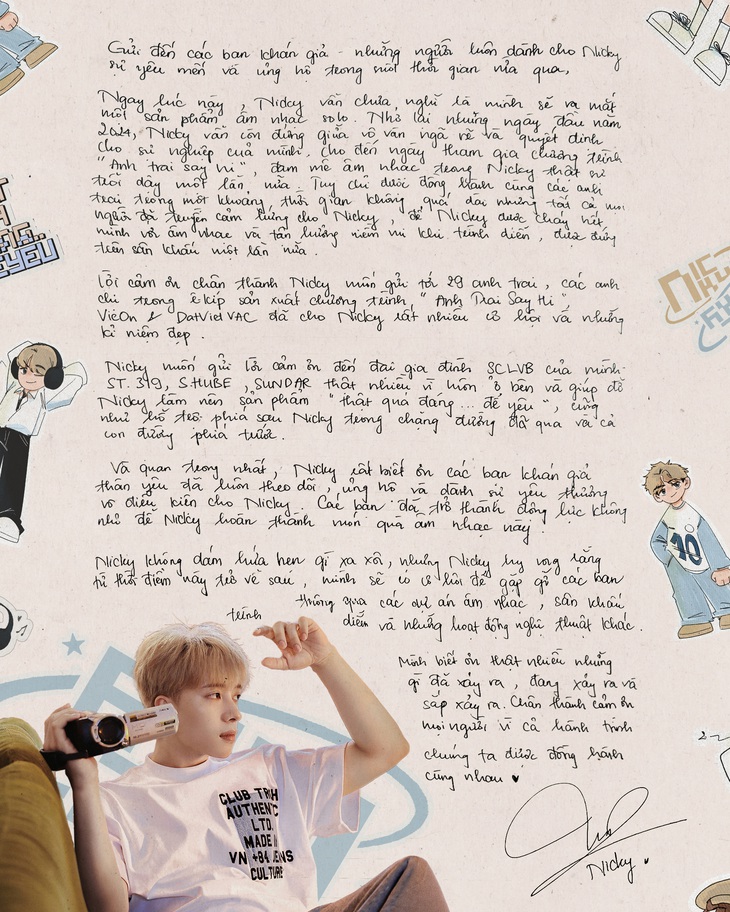 Gửi đến các bạn khán giả - những người luôn dành cho Nicky
sự yêu mến và ủng hộ trong suốt thời gian vừa qua,
Ngay lúc này, Nicky vẫn chưa nghĩ là mình sẽ ra mắt
một sản phẩm âm nhạc solo. Nhớ lại những ngày đầu năm
2024, Nicky vẫn còn đứng giữa vô vàn ngã rẽ và quyết định
cho sự nghiệp của mình. Cho đến ngày tham gia chương trình
"Anh trai say hi", đam mê âm nhạc trong Nicky thật sự
trỗi dậy một lần nữa. Tuy chỉ được đồng hành cùng các anh
trai trong một khoảng thời gian không quá dài nhưng tất cả mọi
người đã truyền cảm hứng cho Nicky, để Nicky được cháy hết
mình với âm nhạc và tận hưởng niềm vui khi trình diễn, được đứng
trên sân khấu một lần nữa.
Lời cảm ơn chân thành Nicky muốn gửi tới 29 anh trai, các anh
chị trong ê kíp sản xuất chương trình "Anh Trai Say Hi",
VieOn & DatVietVAC đã cho Nicky rất nhiều cơ hội và những
kỉ niệm đẹp.
Nicky muốn gửi lời cảm ơn đến đại gia đình SCLUB của mình
ST.319, S.HUBE, SUNDAR thật nhiều vì luôn ở bên và giúp đỡ
Nicky làm nên sản phẩm "thật quá đáng... để yêu", cũng
như hỗ trợ phía sau Nicky trong chặng đường đã qua và cả
con đường phía trước.
Và quan trọng nhất, Nicky rất biết ơn các bạn khán giả
thân yêu đã luôn theo dõi, ủng hộ và dành sự yêu thương
vô điều kiện cho Nicky. Các bạn đã trở thành động lực không
nhỏ để Nicky hoàn thành món quà âm nhạc này.
Nicky không dám hứa hẹn gì xa xôi, nhưng Nicky hy vọng rằng
từ thời điểm này trở về sau, mình sẽ có cơ hội để gặp gỡ các bạn
thông qua các dự án âm nhạc, sân khấu
trình diễn và những hoạt động nghệ thuật khác.
Mình biết ơn thật nhiều những
gì đã xảy ra, đang xảy ra và
sắp xảy ra. Chân thành cảm ơn
mọi người vì cả hành trình
chúng ta được đồng hành
cùng nhau
Nicky
CLUB TRUH
AUTHENTIC
LTD.
MADE IN
VN +84 JEANS
CULTURE
10
YÊU
NIC